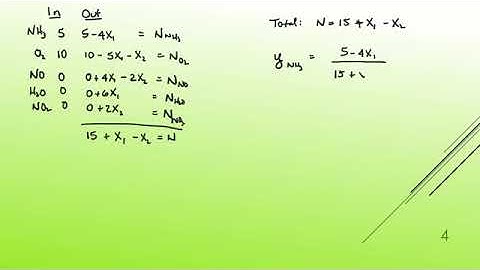 In Out
NH₃ 5 5-4X₁ = N_NH₃
O₂ 10 10-5X₁-X₂ = N_O₂
NO 0 0+4X₁-2X₂ = N_NO
H₂O 0 0+6X₁ = N_H₂O
NO₂ 0 0+2X₂ = N_NO₂
15 + X₁ - X₂ = N
Total: N = 15 + X₁ - X₂
y_NH₃ = 5-4X₁
15 +
4